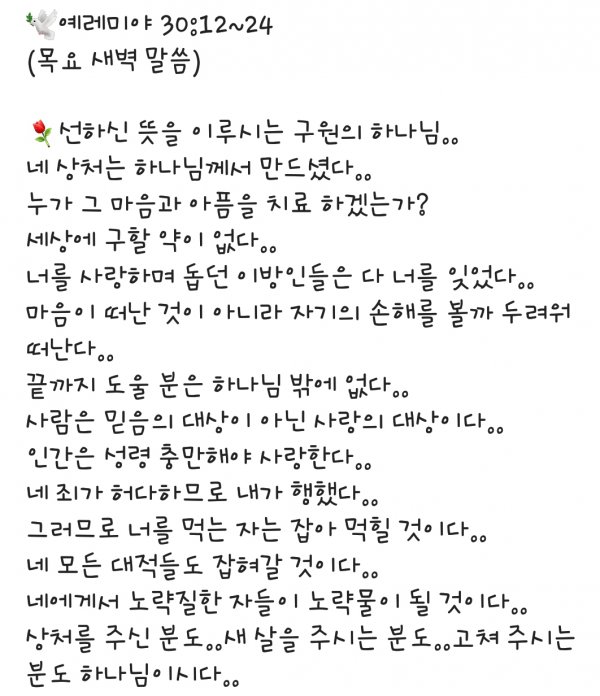 🕊예레미야 30:12~24
(목요 새벽 말씀)
🌹선하신 뜻을 이루시는 구원의 하나님。。
네 상처는 하나님께서 만드셨다。。
누가 그 마음과 아픔을 치료 하겠는가?
세상에 구할 약이 없다。。
너를 사랑하며 돕던 이방인들은 다 너를 잊었다。。
마음이 떠난 것이 아니라 자기의 손해를 볼까 두려워
떠난다。。
끝까지 도울 분은 하나님 밖에 없다。。
사람은 믿음의 대상이 아닌 사랑의 대상이다。。
인간은 성령 충만해야 사랑한다。。
네 죄가 허다하므로 내가 행했다。。
그러므로 너를 먹는 자는 잡아 먹힐 것이다。。
네 모든 대적들도 잡혀갈 것이다。。
네에게서 노략질한 자들이 노략물이 될 것이다。。
상처를 주신 분도。。새 살을 주시는 분도。。고쳐 주시는
분도 하나님이시다。。